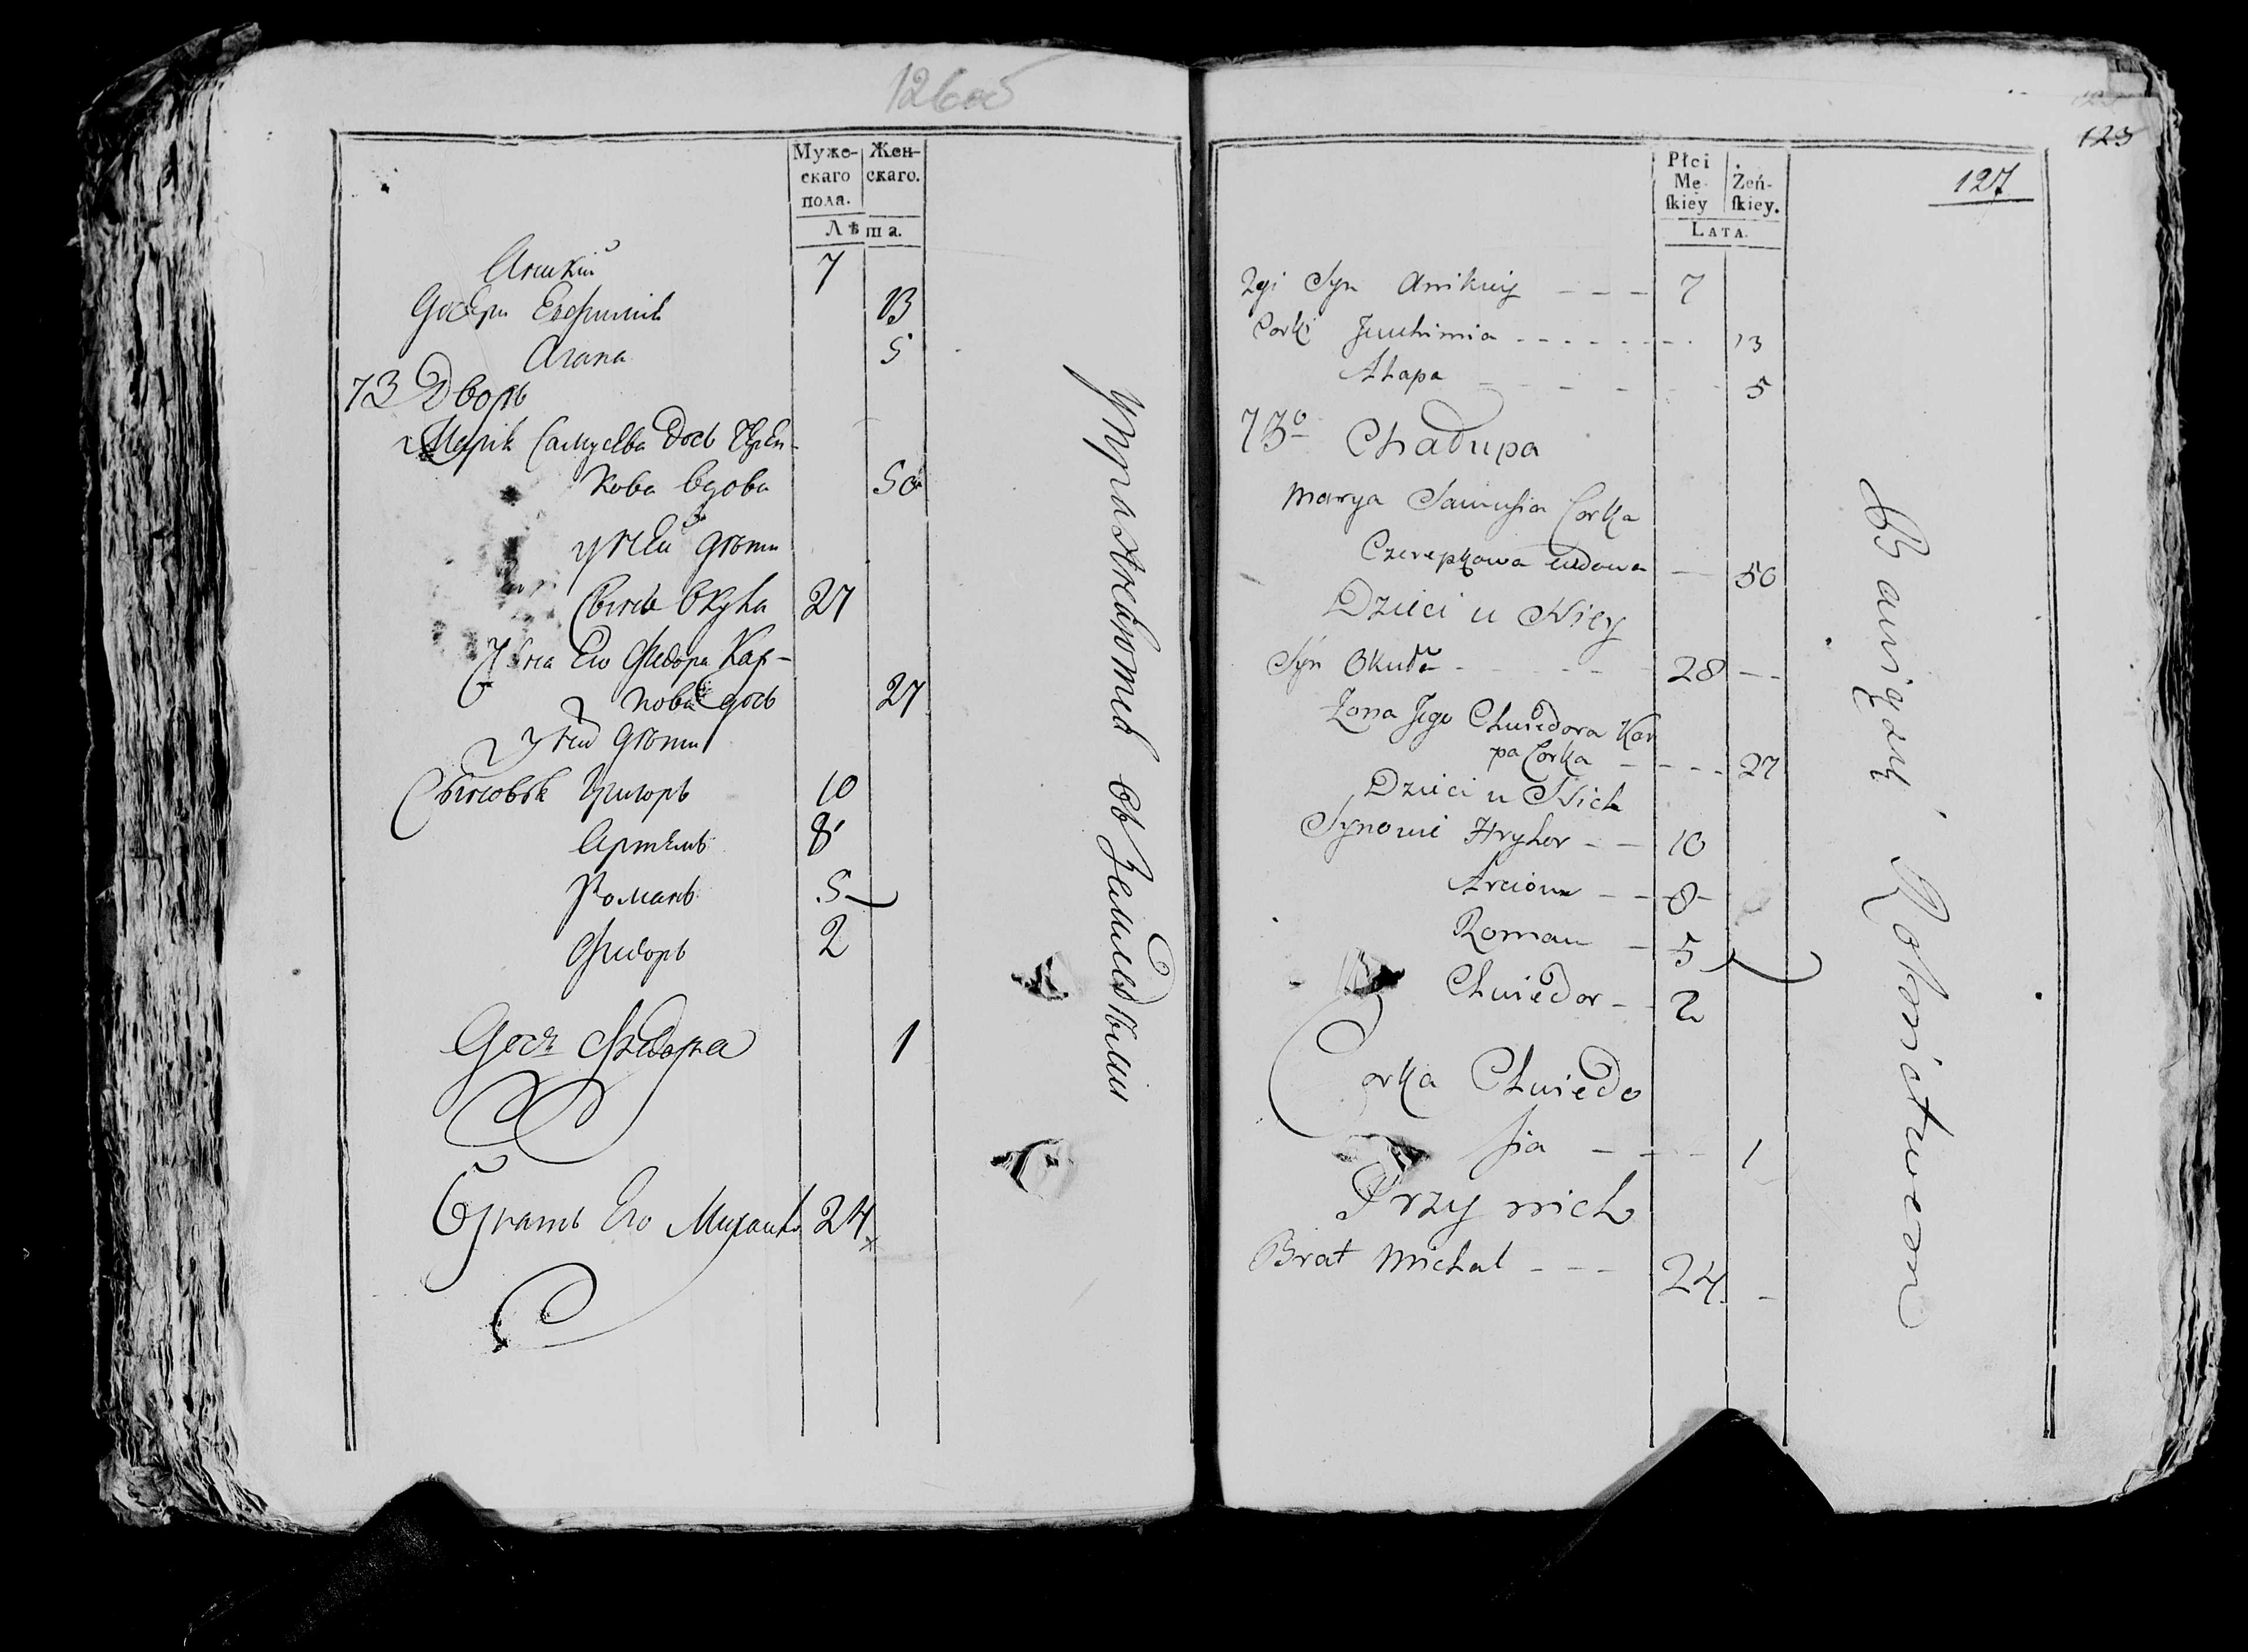 126об
Муже-
скаго
пола.
Жен-
скаго.
Лѣта.
Аникій 7
Дочери Евфимія 13
Агапа 5
73 Дворъ
Марія Самусева дочь Череп-
кова вдова 50
у ней дѣти
Сынъ Окула 27
Жена Его Федора Кар-
пова дочь 27
у них дѣти
Сыновья Григоръ 10
Артемъ 8
Романъ 5
Федоръ 2
Дочь Федора 1
Братъ Его Михайло 24
Упражняются въ земледѣліи
123
127
Płci
Mę-
ſkiey
Żeń-
ſkiey.
LATA.
2gi Syn Anikiiy 7
Corki Jeuchimia 13
Ahapa 5
73o Chałupa
Marya Samusia Corka
Czerepkowa wdowa 50
Dzieci u Niey
Syn Okuła 28
Zona Jego Chwiedora Kar
pa Corka 27
Dzieci u Nich
Synowie Hryhor 10
Arciom 8
Roman 5
Chwiedor 2
Corka Chwiedo
sia 1
Przy nich
Brat Michał 24
Bawią się Rolnictwem